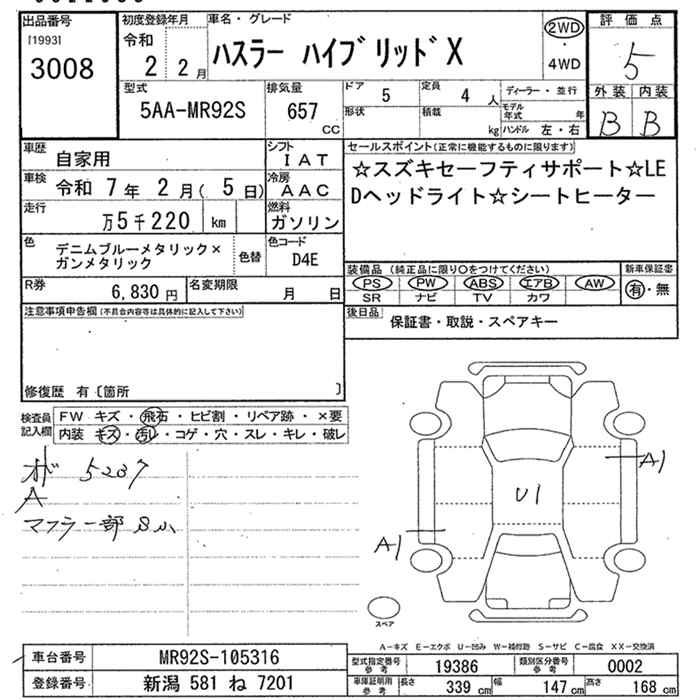 出品番号
[1993]
3008
初度登録年月
令和 2 2月
車名・グレード
ハスラー ハイブリッドX
2WD
・
4WD
評価点
5
外装 内装
B B
型式
5AA-MR92S
排気量
657 CC
ドア 5
定員 4 人
形状
積載 kg
ディーラー・並行
モデル年式 年
ハンドル 左・右
車歴 自家用
シフト IAT
車検 令和 7年 2月( 5日)
冷房 AAC
走行 万5千220 km
燃料 ガソリン
色 デニムブルーメタリック×
ガンメタリック
色替
色コード D4E
R券 6,830円
名変期限 月 日
セールスポイント(正常に機能するものに限ります)
☆スズキセーフティサポート☆LE
Dヘッドライト☆シートヒーター
装備品 (純正品に限り○をつけてください)
PS PW ABS エアB AW
SR ナビ TV カワ
新車保証書
有・無
後日品
保証書・取説・スペアキー
注意事項申告欄(不具合内容等は具体的に記入して下さい)
修復歴 有〔箇所 〕
検査員記入欄
FW キズ・飛石・ヒビ割・リペア跡・×要
内装 キズ・汚レ・コゲ・穴・スレ・キレ・破レ
オド 5237
A
マフラー一部S小
A1
U1
A1
スペア
A-キズ E-エクボ U-凹み W-補修跡 S-サビ C-腐食 XX-交換済
車台番号 MR92S-105316
登録番号 新潟 581 ね 7201
型式指定番号 参考 19386
類別区分番号 参考 0002
車庫証明用 参考
長さ 339cm 幅 147cm 高さ 168cm